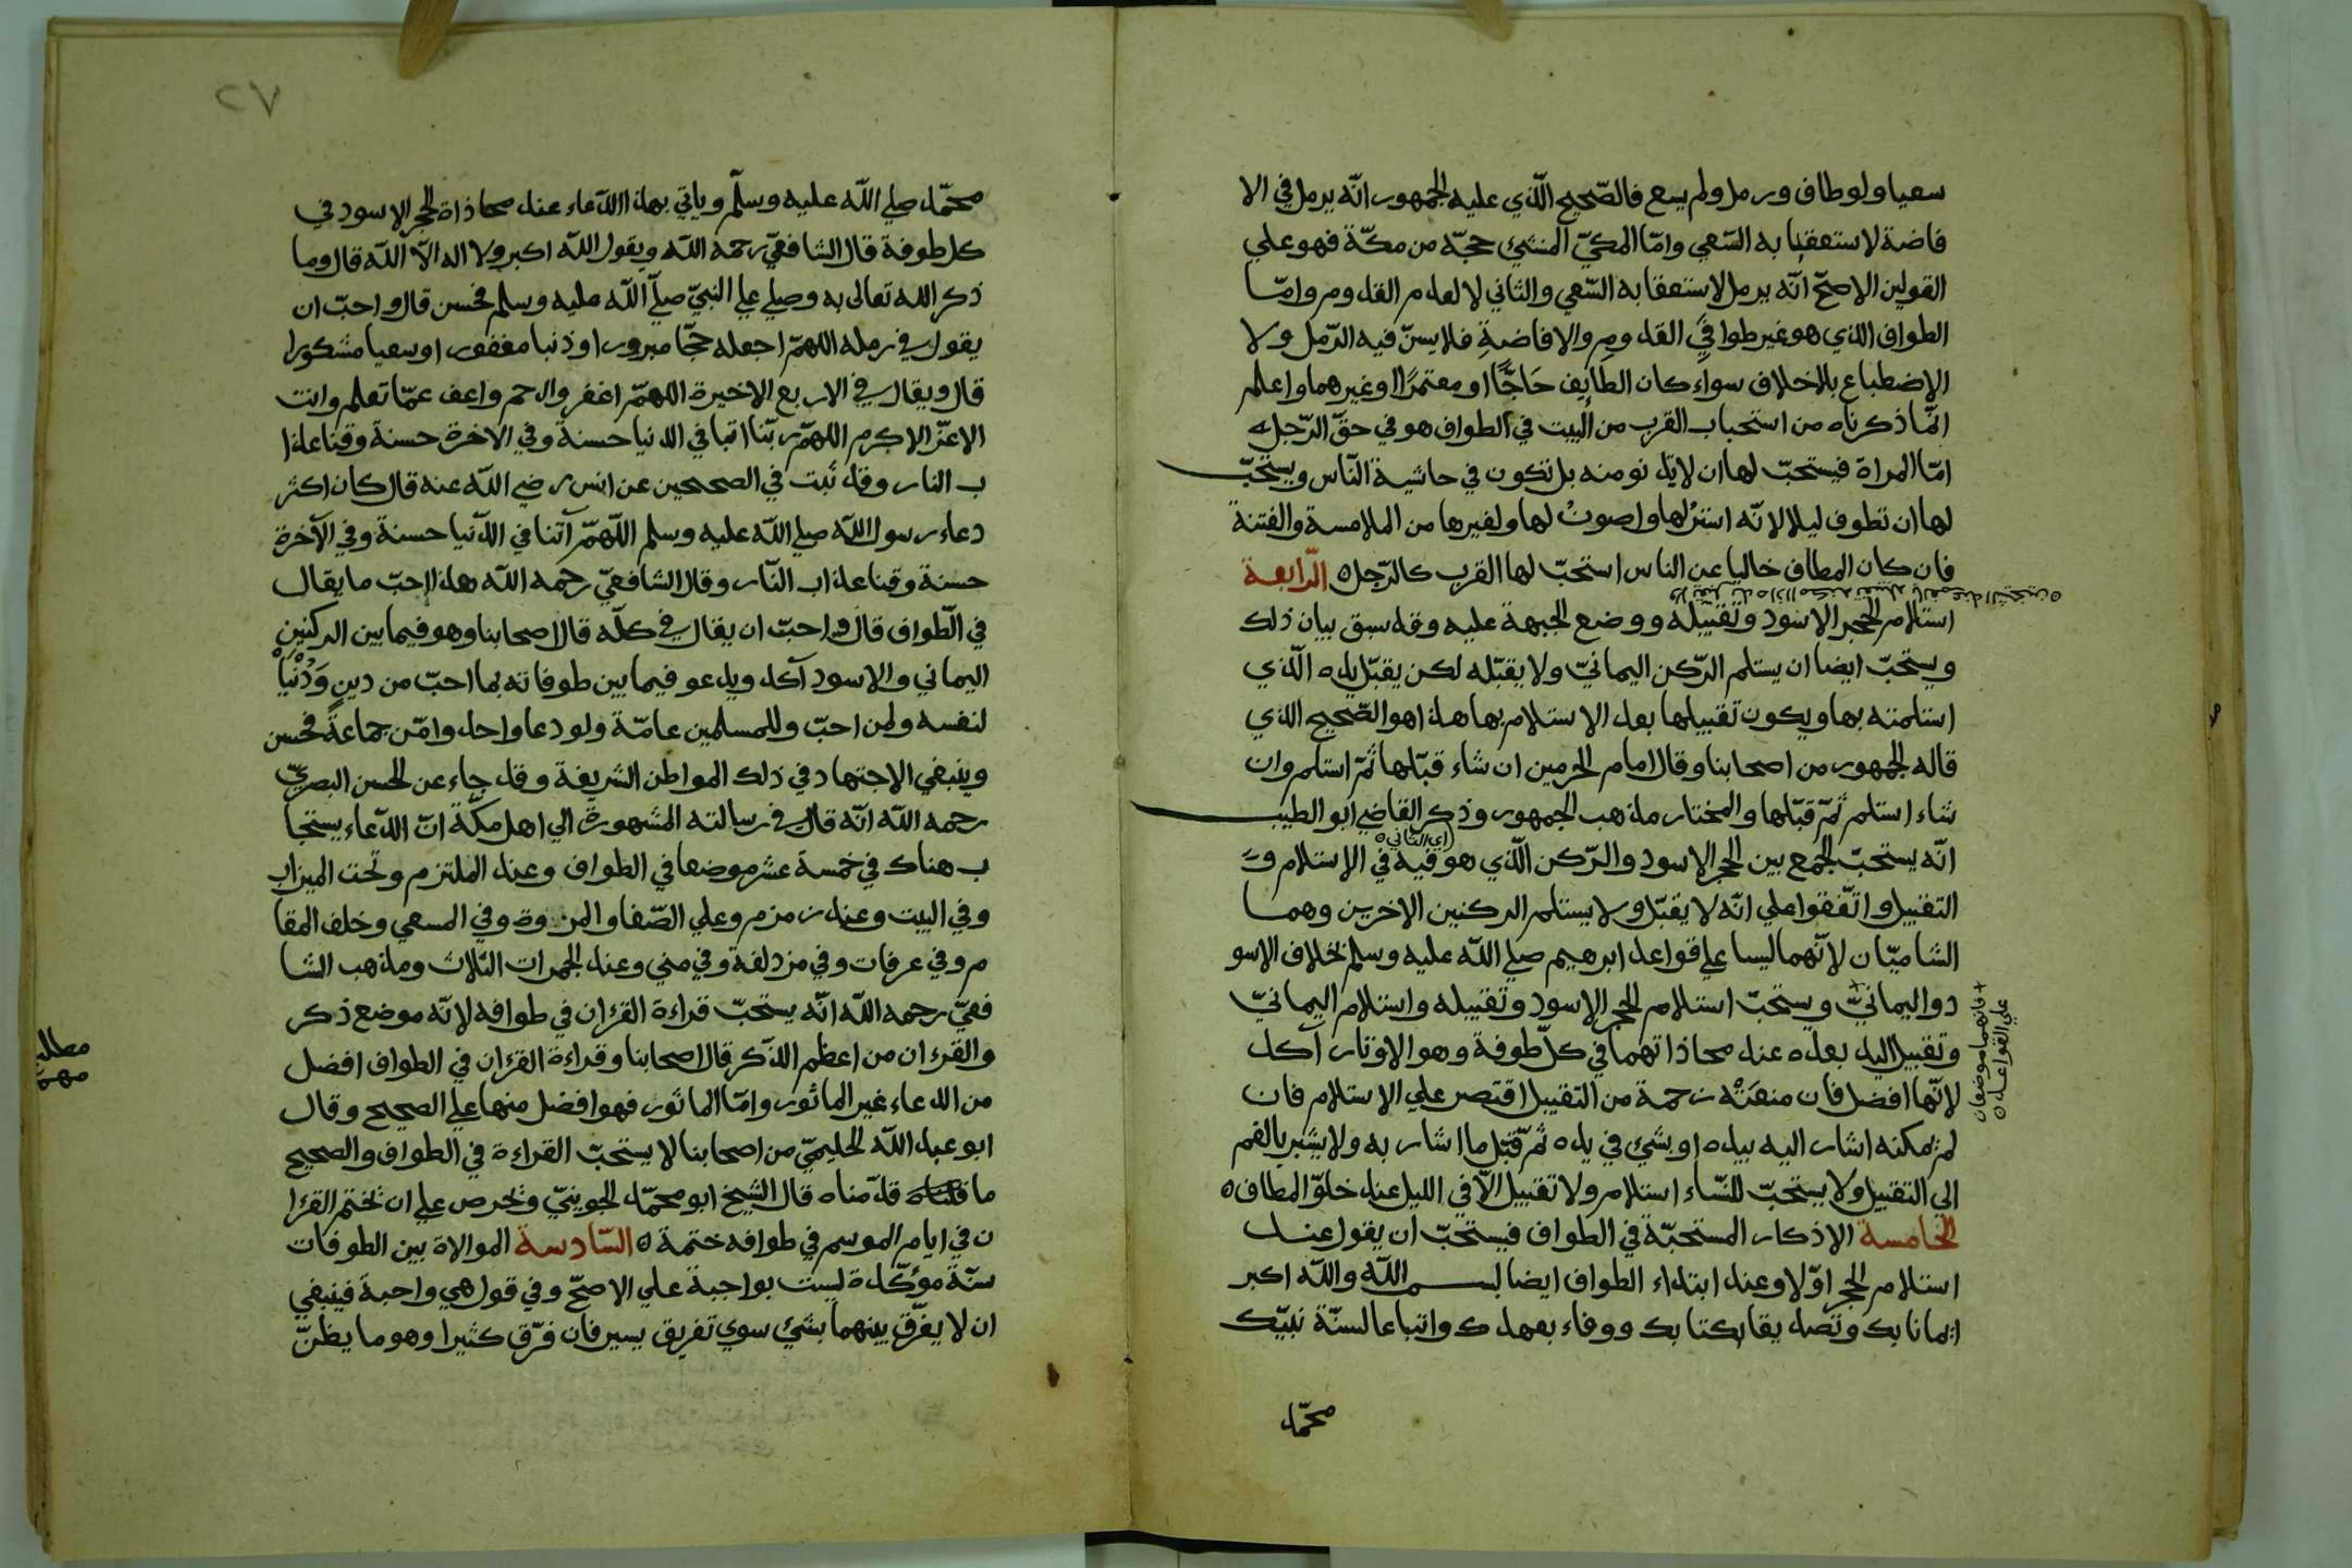 سعيا ولو طاف ورمل ولم يسع فالصّحيح الّذي عليه الجمهور انّه يرمل في الا
فاضة لاستعقابه السّعي وامّا المكيّ المنشئ حجّه من مكّة فهو علي
القولين الاصحّ انّه يرمل لاستعقابه السّعي والثاني لا لعدم القدوم وامّا
الطواف الذي هو غير طوافي القدوم والافاضة فلا يسنّ فيه الرّمل ولا
الإضطباع بلاخلاف سواء كان الطايف حَاجًّا او معتمرًا او غيرهما واعلم
انّما ذكرناه من استحباب القرب من البيت في الطواف هو في حقّ الرّجل
امّا المراة فيستحبّ لها ان لا تدنو منه بل تكون في حاشية النّاس ويستحبّ
لها ان تطوف ليلا لانّه استر لها واصون لها ولغيرها من الملامسة والفتنة
فان كان المطاف خاليا عن الناس استحبّ لها القرب كالرّجل ه الرّابعة
استلام الحجر الاسود وتقبيله ووضع الجبهة عليه وقد سبق بيان ذلك
ويستحبّ ايضا ان يستلم الرّكن اليمانيّ ولا يقبّله لكن يقبّل يده الّذي
استلمته بها ويكون تقبيلها بعد الاستلام بها هذا هو الصّحيح الذي
قاله الجمهور من اصحابنا وقال امام الحرمين ان شاء قبّلها ثمّ استلم وان
شاء استلم ثمّ قبّلها والمختار مذهب الجمهور وذكر القاضي ابو الطيب
(اي الثاني ه
انّه يستحبّ الجمع بين الحجر الاسود والرّكن الّذي هو فيه في الإستلام و
التقبيل واتّفقوا علي انّه لا يقبّل ولا يستلم الركنين الاخرين وهما
الشاميّان لانّهما ليسا علي قواعد ابرهيم صلي اللّه عليه وسلم بخلاف الاسو
د واليمانيّ ويستحبّ استلام الحجر الاسود وتقبيله واستلام اليمانيّ
وتقبيل اليد بعده عند محاذاتهما في كلّ طوفة وهو الاوتار آكد
لانّها افضل فان منعَتْه زحمة من التقبيل اقتصر علي الاستلام فان
لم يمكنه اشار اليه بيده او بشئ في يده ثمّ قبّل ما اشار به ولا يشير بالفم
الي التقبيل ولا يستحبّ للنّساء استلام ولا تقبيل الّا في الليل عند خلوّ المطاف ه
الخامسة الاذكار المستحبّة في الطواف فيستحبّ ان يقول عند
استلام الحجر اوّلا وعند ابتداء الطواف ايضا بسم اللّه واللّه اكبر
ايمانا بك وتصديقا بكتابك ووفاء بعهدك واتباعا لسنّة نبيّك
محمّد
+ فانهما موضعان
علي القواعد ه
٢٧
محمّد صلي اللّه عليه وسلّم وياتي بهذا الدّعاء عند محاذاة الحجر الاسود في
كل طوفة قال الشافعيّ رحمه اللّه ويقول اللّه اكبر ولا اله الّا اللّه قال وما
ذكر اللّه تعالى به وصلي علي النبيّ صلّي اللّه عليه وسلم فحسن قال واحبّ ان
يقول في رمله اللهمّ اجعله حجّا مبرورا وذنبا مغفورا وسعيا مشكورا
قال ويقال في الاربع الاخيرة اللهمّ اغفر وارحم واعف عمّا تعلم وانت
الاعزّ الاكرم اللهمّ ربّنا اتنا في الدنيا حسنة وفي الاخرة حسنة وقنا عذا
ب النار وقد ثبت في الصحيحين عن انس رضي اللّه عنه قال كان اكثر
دعاء رسول اللّه صلي اللّه عليه وسلم اللّهمّ آتنا في الدّنيا حسنة وفي الآخرة
حسنة وقنا عذاب النّار وقال الشافعيّ رحمه اللّه هذا احبّ ما يقال
في الّطواف قال واحبّ ان يقال في كلّه قال اصحابنا وهو فيما بين الركنين
اليماني والاسود آكد ويدعو فيما بين طوفاته بما احبّ من دين وَدُنْيَا
لنفسه ولمن احبّ وللمسلمين عامّة ولو دعا واحد وامّن جماعةٌ فحسن
وينبغي الاجتهاد في ذلك المواطن الشريفة وقد جاء عن الحسن البصريّ
رحمه اللّه انّه قال في رسالته المشهورة الي اهل مكّة انّ الدّعاء يستجا
ب هناك في خمسة عشر موضعا في الطواف وعند الملتزم وتحت الميزاب
وفي البيت وعند زمزم وعلي الصّفا والمروة وفي المسعي وخلف المقا
م وفي عرفات وفي مزدلفة وفي مني وعند الجمرات الثلاث ومذهب الشا
فعيّ رحمه اللّه انّه يستحبّ قراءة القرءان في طوافه لانّه موضع ذكر
والقرءان من اعظم الذّكر قال اصحابنا وقراءة القرءان في الطواف افضل
من الدعاء غير الماثور وامّا الماثور فهو افضل منها علي الصحيح وقال
ابو عبد اللّه الحليميّ من اصحابنا لا يستحبّ القراءة في الطواف والصحيح
ما قدّمناه قال الشيخ ابو محمّد الجوينيّ وتحرص علي ان تختم القرءا
ن في ايام الموسم في طوافه ختمة ه السّادسة الموالاة بين الطوفات
سنّة مؤكّدة ليست بواجبة علي الاصحّ وفي قول هي واجبة فينبغي
ان لا يفرّق بينهما بشئ سوي تفريق يسير فان فرّق كثيرا وهو ما يظنّ
مطالب
مهم